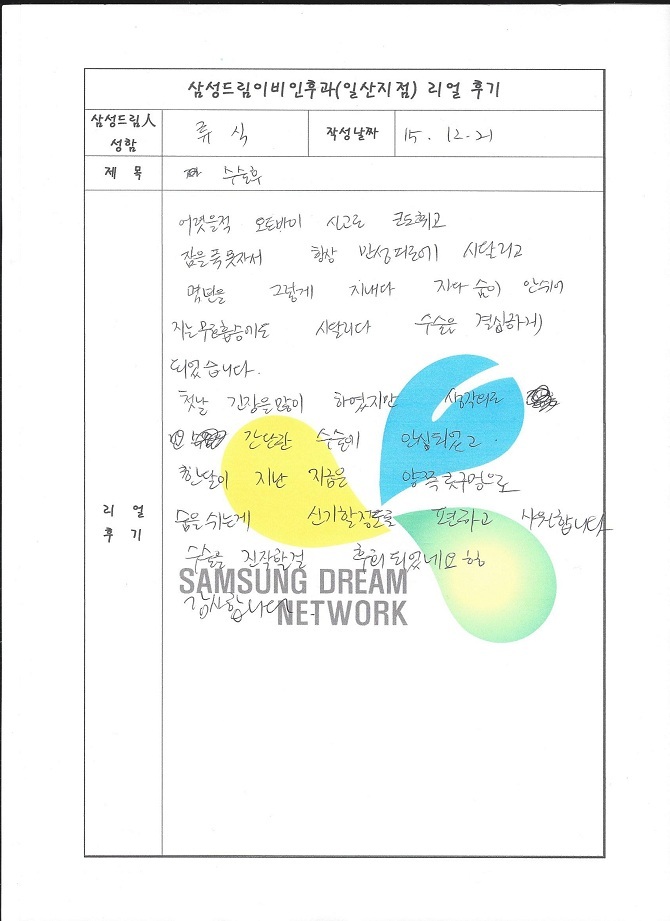 삼성드림이비인후과(일산지점) 리얼 후기
삼성드림人 성함
류 식
작성날짜
15. 12. 21
제 목
수술후
리 얼 후 기
어렸을적 오토바이 사고로 코도휘고
잠을 푹 못자서 항상 만성피로에 시달리고
몇년을 그렇게 지내다 자다 숨이 안쉬어
지는무호흡증에도 시달리다 수술을 결심하게
되었습니다.
첫날 긴장을많이 하였지만 생각외로
간단한 수술에 안심되었고.
한달이 지난 지금은 양쪽콧구멍으로
숨을쉬는게 신기할정도로 편하고 시원합니다
수술을 진작할걸 후회되었네요
감사합니다.
SAMSUNG DREAM
NETWORK